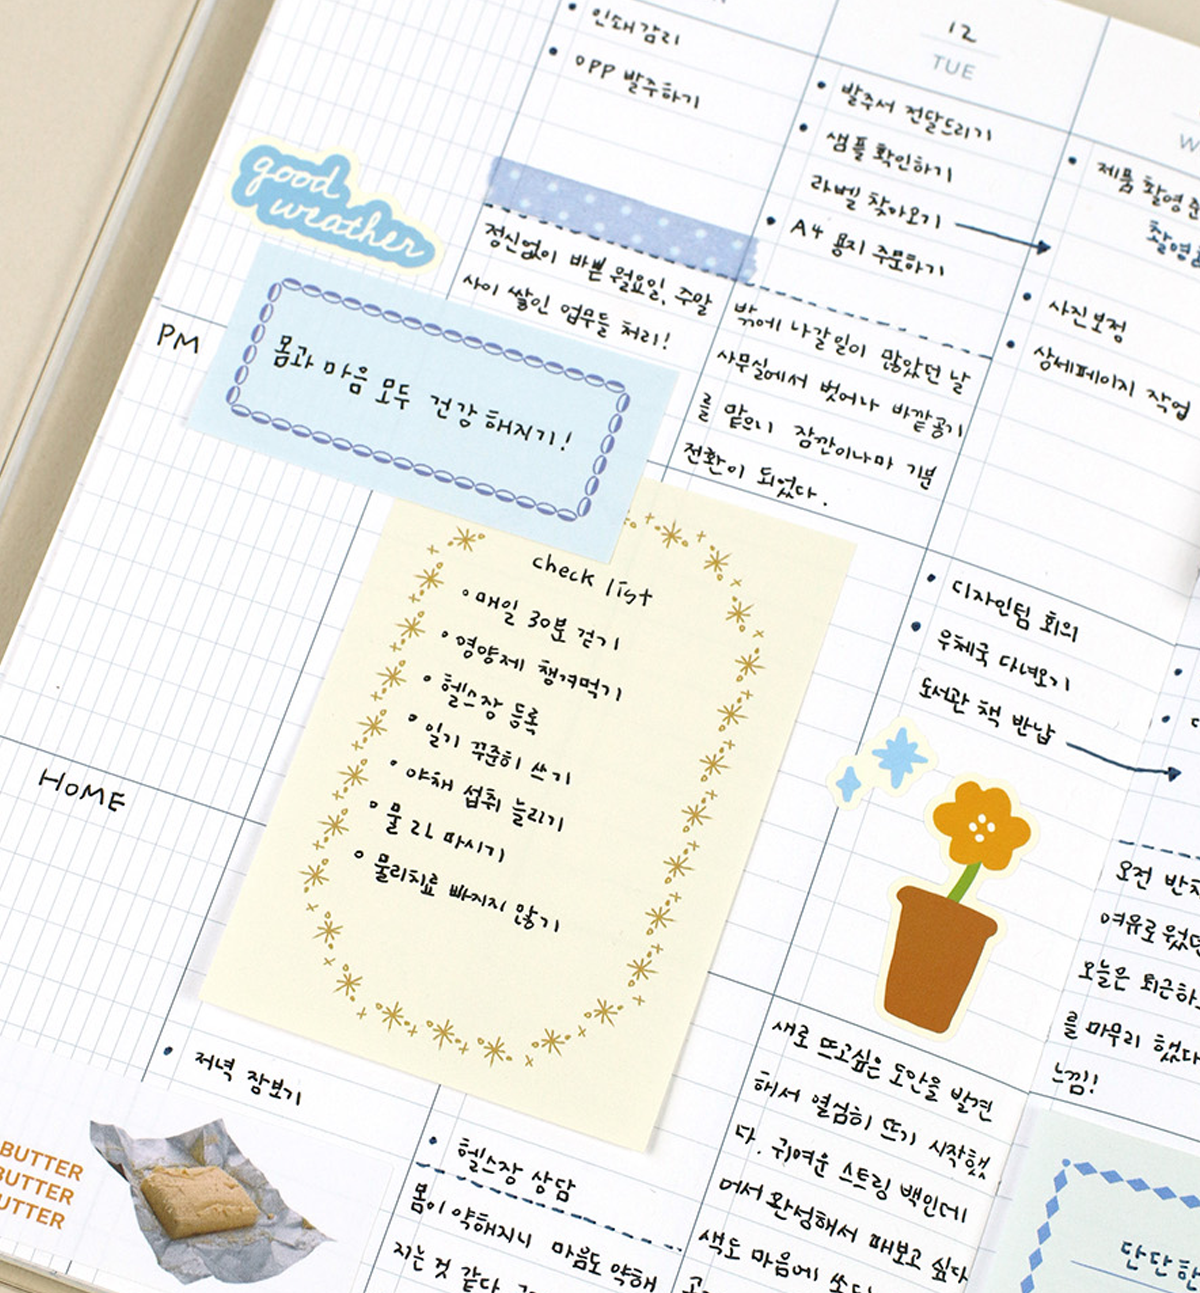 인쇄 감리
OPP 발주하기
정신없이 바쁜 월요일, 주말
사이 쌓인 업무들 처리!
12
TUE
발주서 전달드리기
샘플 확인하기
라벨 찾아오기
A4 용지 주문하기
밖에 나갈일이 많았던 날
사무실에서 벗어나 바깥공기
를 맡으니 잠깐이나마 기분
전환이 되었다.
W
제품 촬영
사진보정
상세페이지 작업
good
weather
PM
몸과 마음 모두 건강해지기!
check list
매일 30분 걷기
영양제 챙겨먹기
헬스장 등록
일기 꾸준히 쓰기
야채 섭취 늘리기
물 2L 마시기
물리치료 빠지지 않기
디자인팀 회의
우체국 다녀오기
도서관 책 반납
HOME
저녁 장보기
BUTTER
BUTTER
UTTER
헬스장 상담
몸이 약해지니 마음도 약해
지는 것 같다.
새로 뜨고싶은 도안을 발견
해서 열심히 뜨기 시작했
다. 귀여운 스트링 백인데
어서 완성해서 매보고 싶다
색도 마음에 쏘
오전 반차
여유로웠던
오늘은 퇴근하
를 마무리 했다
느낌!
단단한